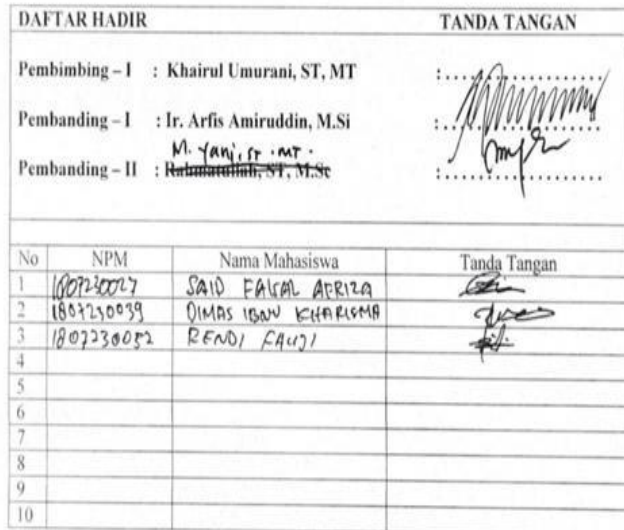 DAFTAR HADIR TANDA TANGAN
Pembimbing – I : Khairul Umurani, ST, MT :....................
Pembanding – I : Ir. Arfis Amiruddin, M.Si :....................
M. Yani, ST . MT .
Pembanding – II : Rahmatullah, ST, M.Sc :....................
No NPM Nama Mahasiswa Tanda Tangan
1 1807230027 SAID FAISAL AFRIZA
2 1807230039 DIMAS IBNU KHARISMA
3 1807230052 RENDI FAUJI
4
5
6
7
8
9
10